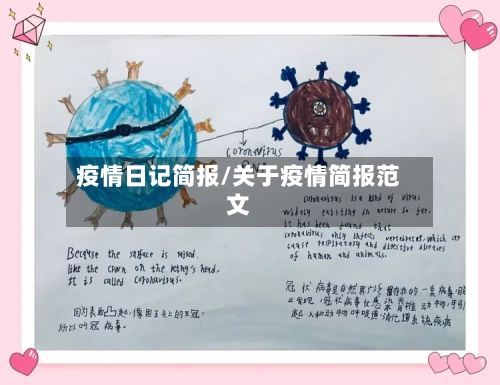 coronavirus
疫情日记简报/关于疫情简报范
文
coronavirus is a kind of virus
widely existing in nature so far.
it has been found that
coronavirus only infects vertebrates, which can
cause respiratory and digestive diseases
of human and animals.
Because the surface is raised,
like the crown on the king's head,
It is called coronavirus.
冠状病毒是自然界广泛存在的一类病毒,
发现,冠状病毒仅感染脊椎动物,可引
起人和动物呼吸道,消化道系统疾病
因为表面凸起,像国王头上的王冠,
所以叫冠病毒。